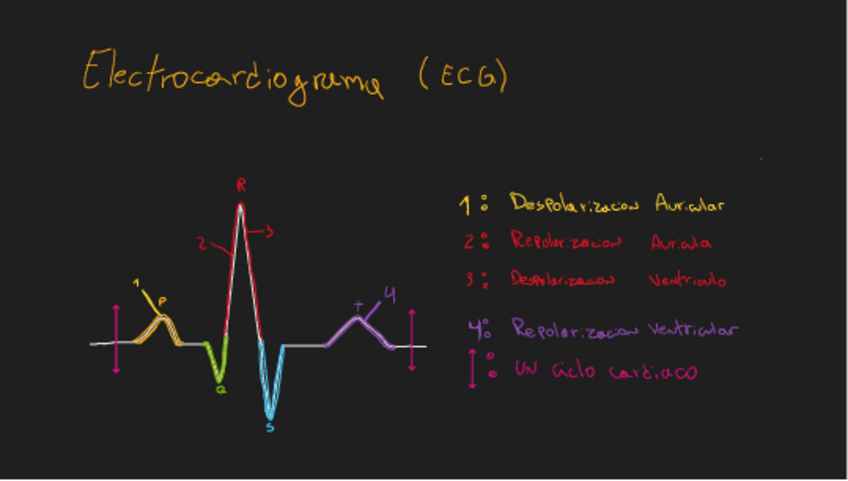 Electrocardiograma (ECG)
R
2
3
1
P
+
4
Q
S
1: Despolarizacion Auricular
2: Repolarizacion Auricula
3: Despolarizacion Ventriculo
4: Repolarizacion Ventricular
: UN Ciclo cardiaco